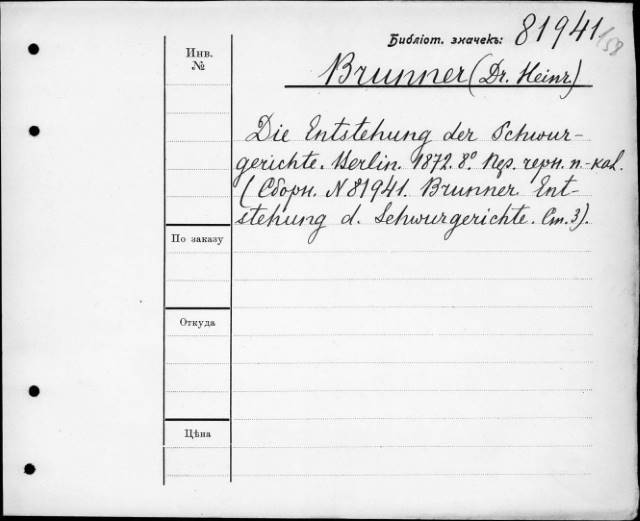 Библіот. значекъ: 81941
158
Инв.
№
Brunner (Dr. Heinr)
Die Entstehung der Schwur-
gerichte. Berlin. 1872. 8º. Пер. черн. п.-кал.
(Сборн. N 81941. Brunner. Ent-
stehung d. Schwurgerichte. Ст. 3).
По заказу
Откуда
Цѣна